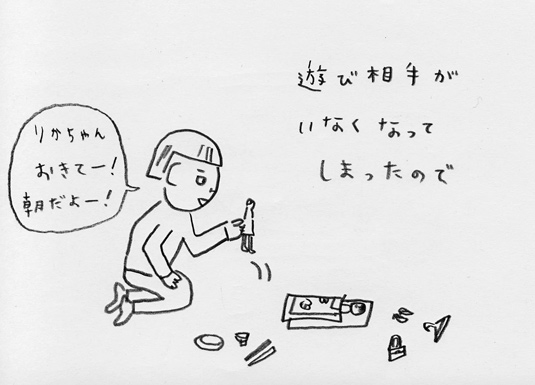 遊び相手が
いなくなって
しまったので
りかちゃん
おきてー!
朝だよー!